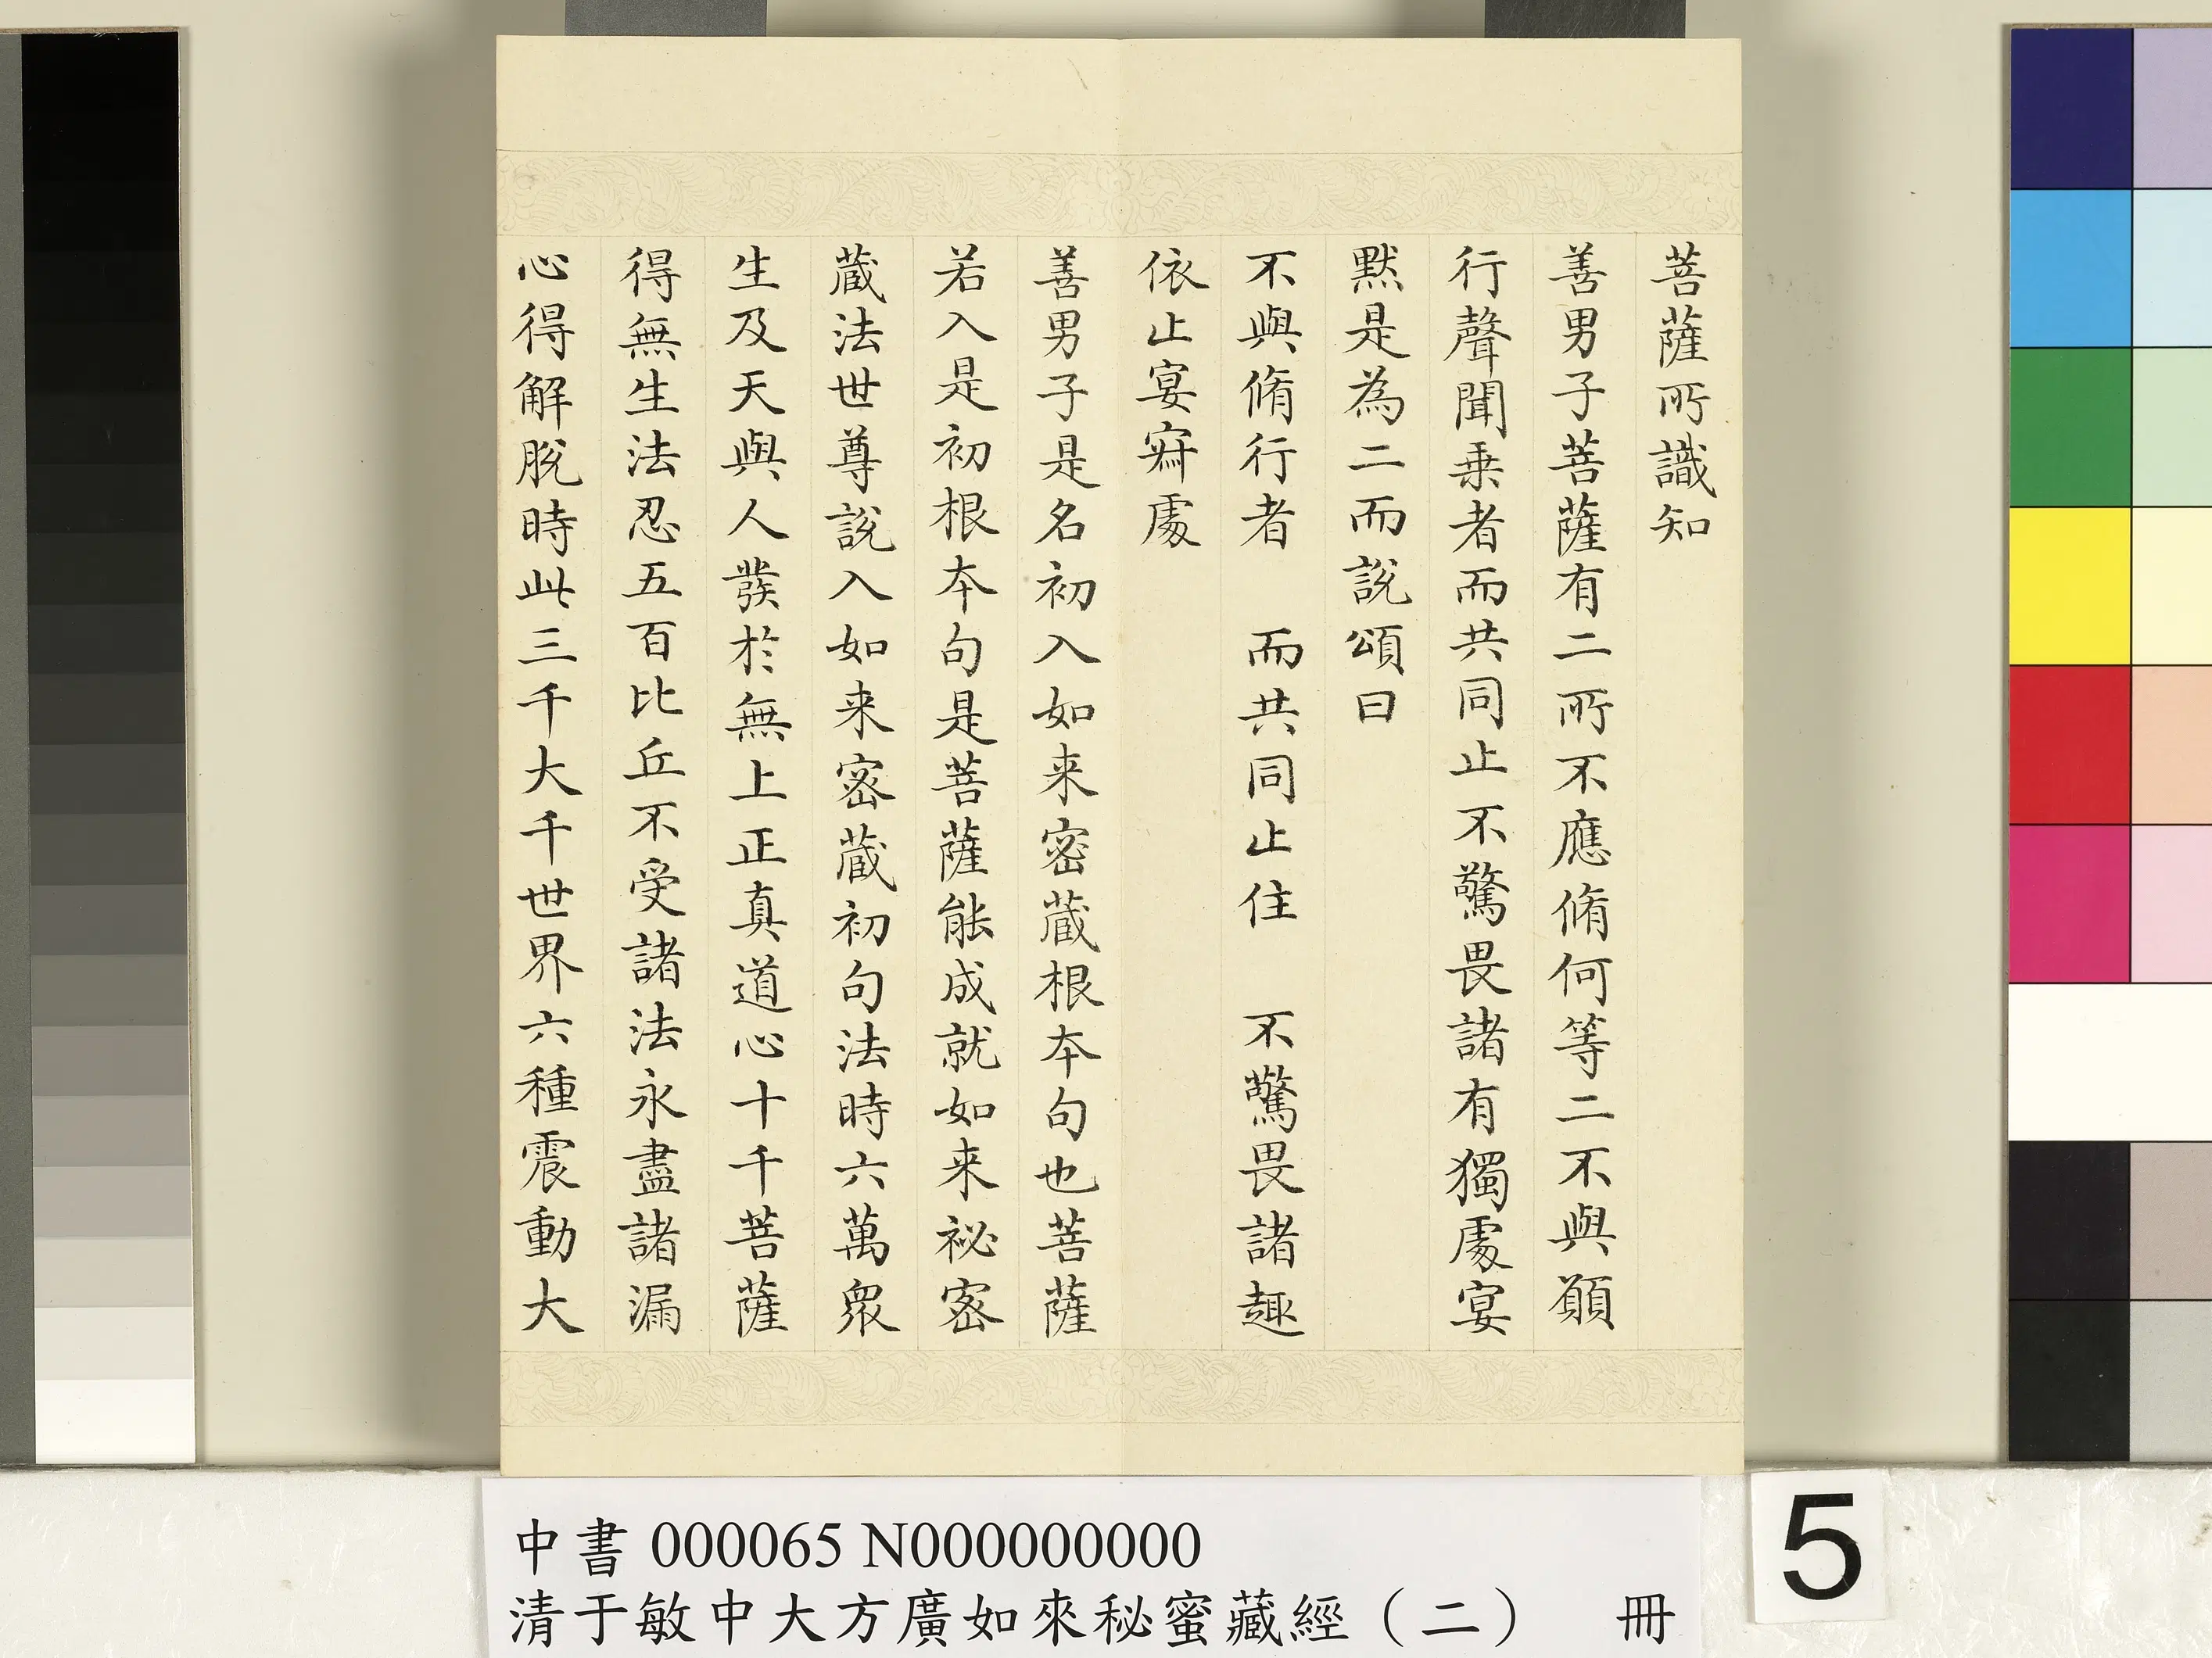 菩薩所識知
善男子菩薩有二所不應脩何等二不與願
行聲聞乗者而共同止不驚畏諸有獨處宴
黙是為二而説頌曰
不與脩行者　而共同止住　不驚畏諸趣
依止宴𡧯處
善男子是名初入如来密蔵根本句也菩薩
若入是初根本句是菩薩能成就如来祕密
蔵法世尊説入如来密蔵初句法時六萬衆
生及天與人發於無上正真道心十千菩薩
得無生法忍五百比丘不受諸法永盡諸漏
心得解脫時此三千大千世界六種震動大
中書 000065 N000000000
清于敏中大方廣如來秘蜜藏經（二）　冊
5